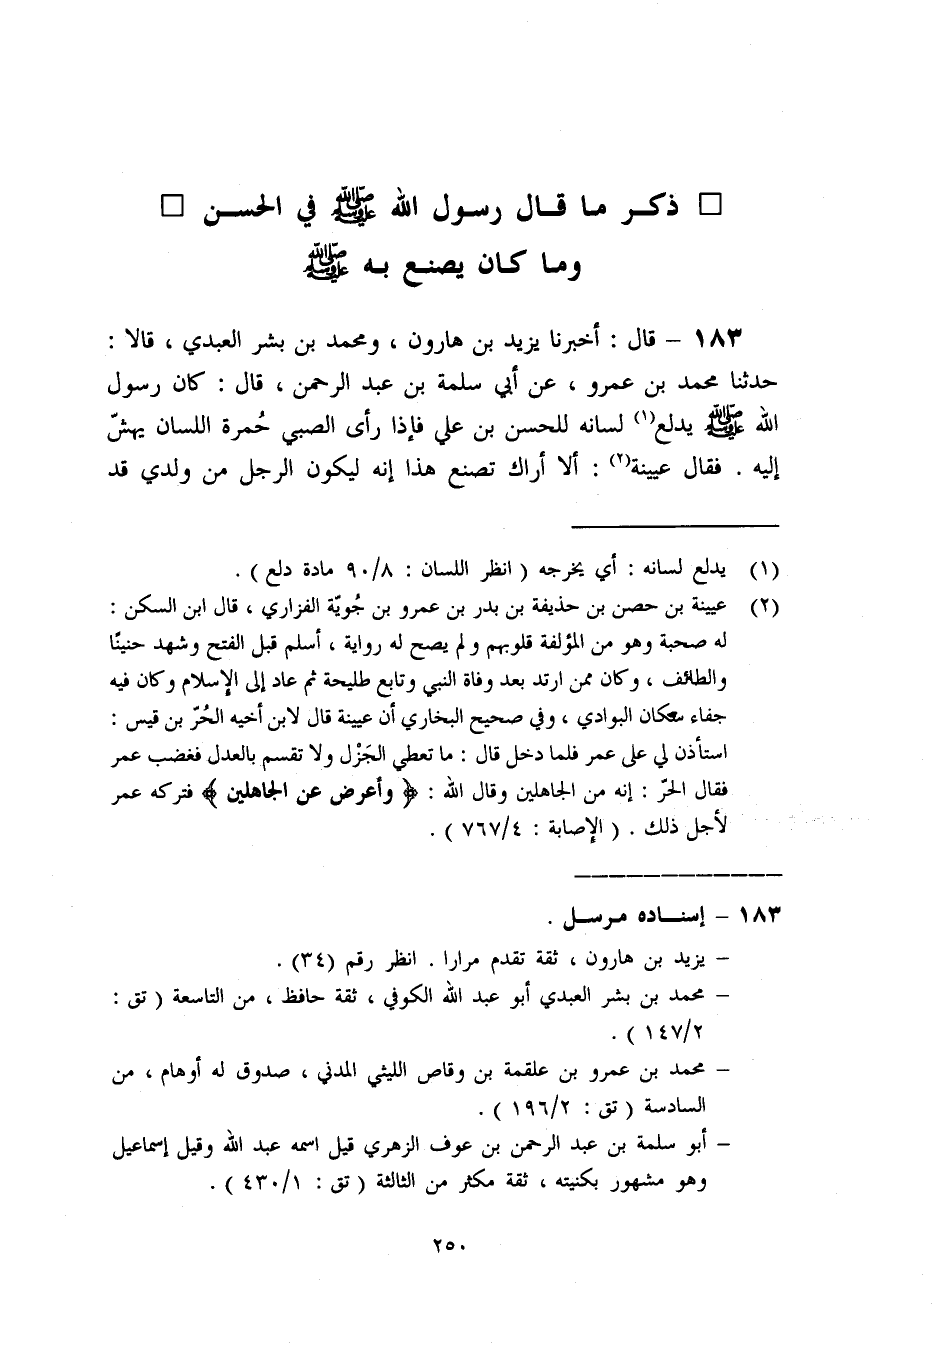 □ ذكـر مـا قـال رسـول الله ﷺ في الحسـن □
ومـا كـان يصنـع بـه ﷺ
١٨٣ – قال : أخبرنا يزيد بن هارون ، ومحمد بن بشر العبدي ، قالا :
حدثنا محمد بن عمرو ، عن أبي سلمة بن عبد الرحمن ، قال : كان رسول
الله ﷺ يدلع(١) لسانه للحسن بن علي فإذا رأى الصبي حُمرة اللسان يهشّ
إليه . فقال عيينة(٢) : ألا أراك تصنع هذا إنه ليكون الرجل من ولدي قد
(١) يدلع لسانه : أي يخرجه ( انظر اللسان : ٩٠/٨ مادة دلع ) .
(٢) عيينة بن حصن بن حذيفة بن بدر بن عمرو بن جُويّة الفزاري ، قال ابن السكن :
له صحبة وهو من المؤلفة قلوبهم ولم يصح له رواية ، أسلم قبل الفتح وشهد حنينًا
والطائف ، وكان ممن ارتد بعد وفاة النبي وتابع طليحة ثم عاد إلى الإسلام وكان فيه
جفاء سكان البوادي ، وفي صحيح البخاري أن عيينة قال لابن أخيه الحُرّ بن قيس :
استأذن لي على عمر فلما دخل قال : ما تعطي الجَزْل ولا تقسم بالعدل فغضب عمر
فقال الحرّ : إنه من الجاهلين وقال الله : ﴿ وأعرض عن الجاهلين ﴾ فتركه عمر
لأجل ذلك . ( الإصابة : ٧٦٧/٤ ) .
١٨٣ – إسنــاده مـرسـل .
– يزيد بن هارون ، ثقة تقدم مرارا . انظر رقم (٣٤) .
– محمد بن بشر العبدي أبو عبد الله الكوفي ، ثقة حافظ ، من التاسعة ( تق :
١٤٧/٢ ) .
– محمد بن عمرو بن علقمة بن وقاص الليثي المدني ، صدوق له أوهام ، من
السادسة ( تق : ١٩٦/٢ ) .
– أبو سلمة بن عبد الرحمن بن عوف الزهري قيل اسمه عبد الله وقيل إسماعيل
وهو مشهور بكنيته ، ثقة مكثر من الثالثة ( تق : ٤٣٠/١ ) .
٢٥٠